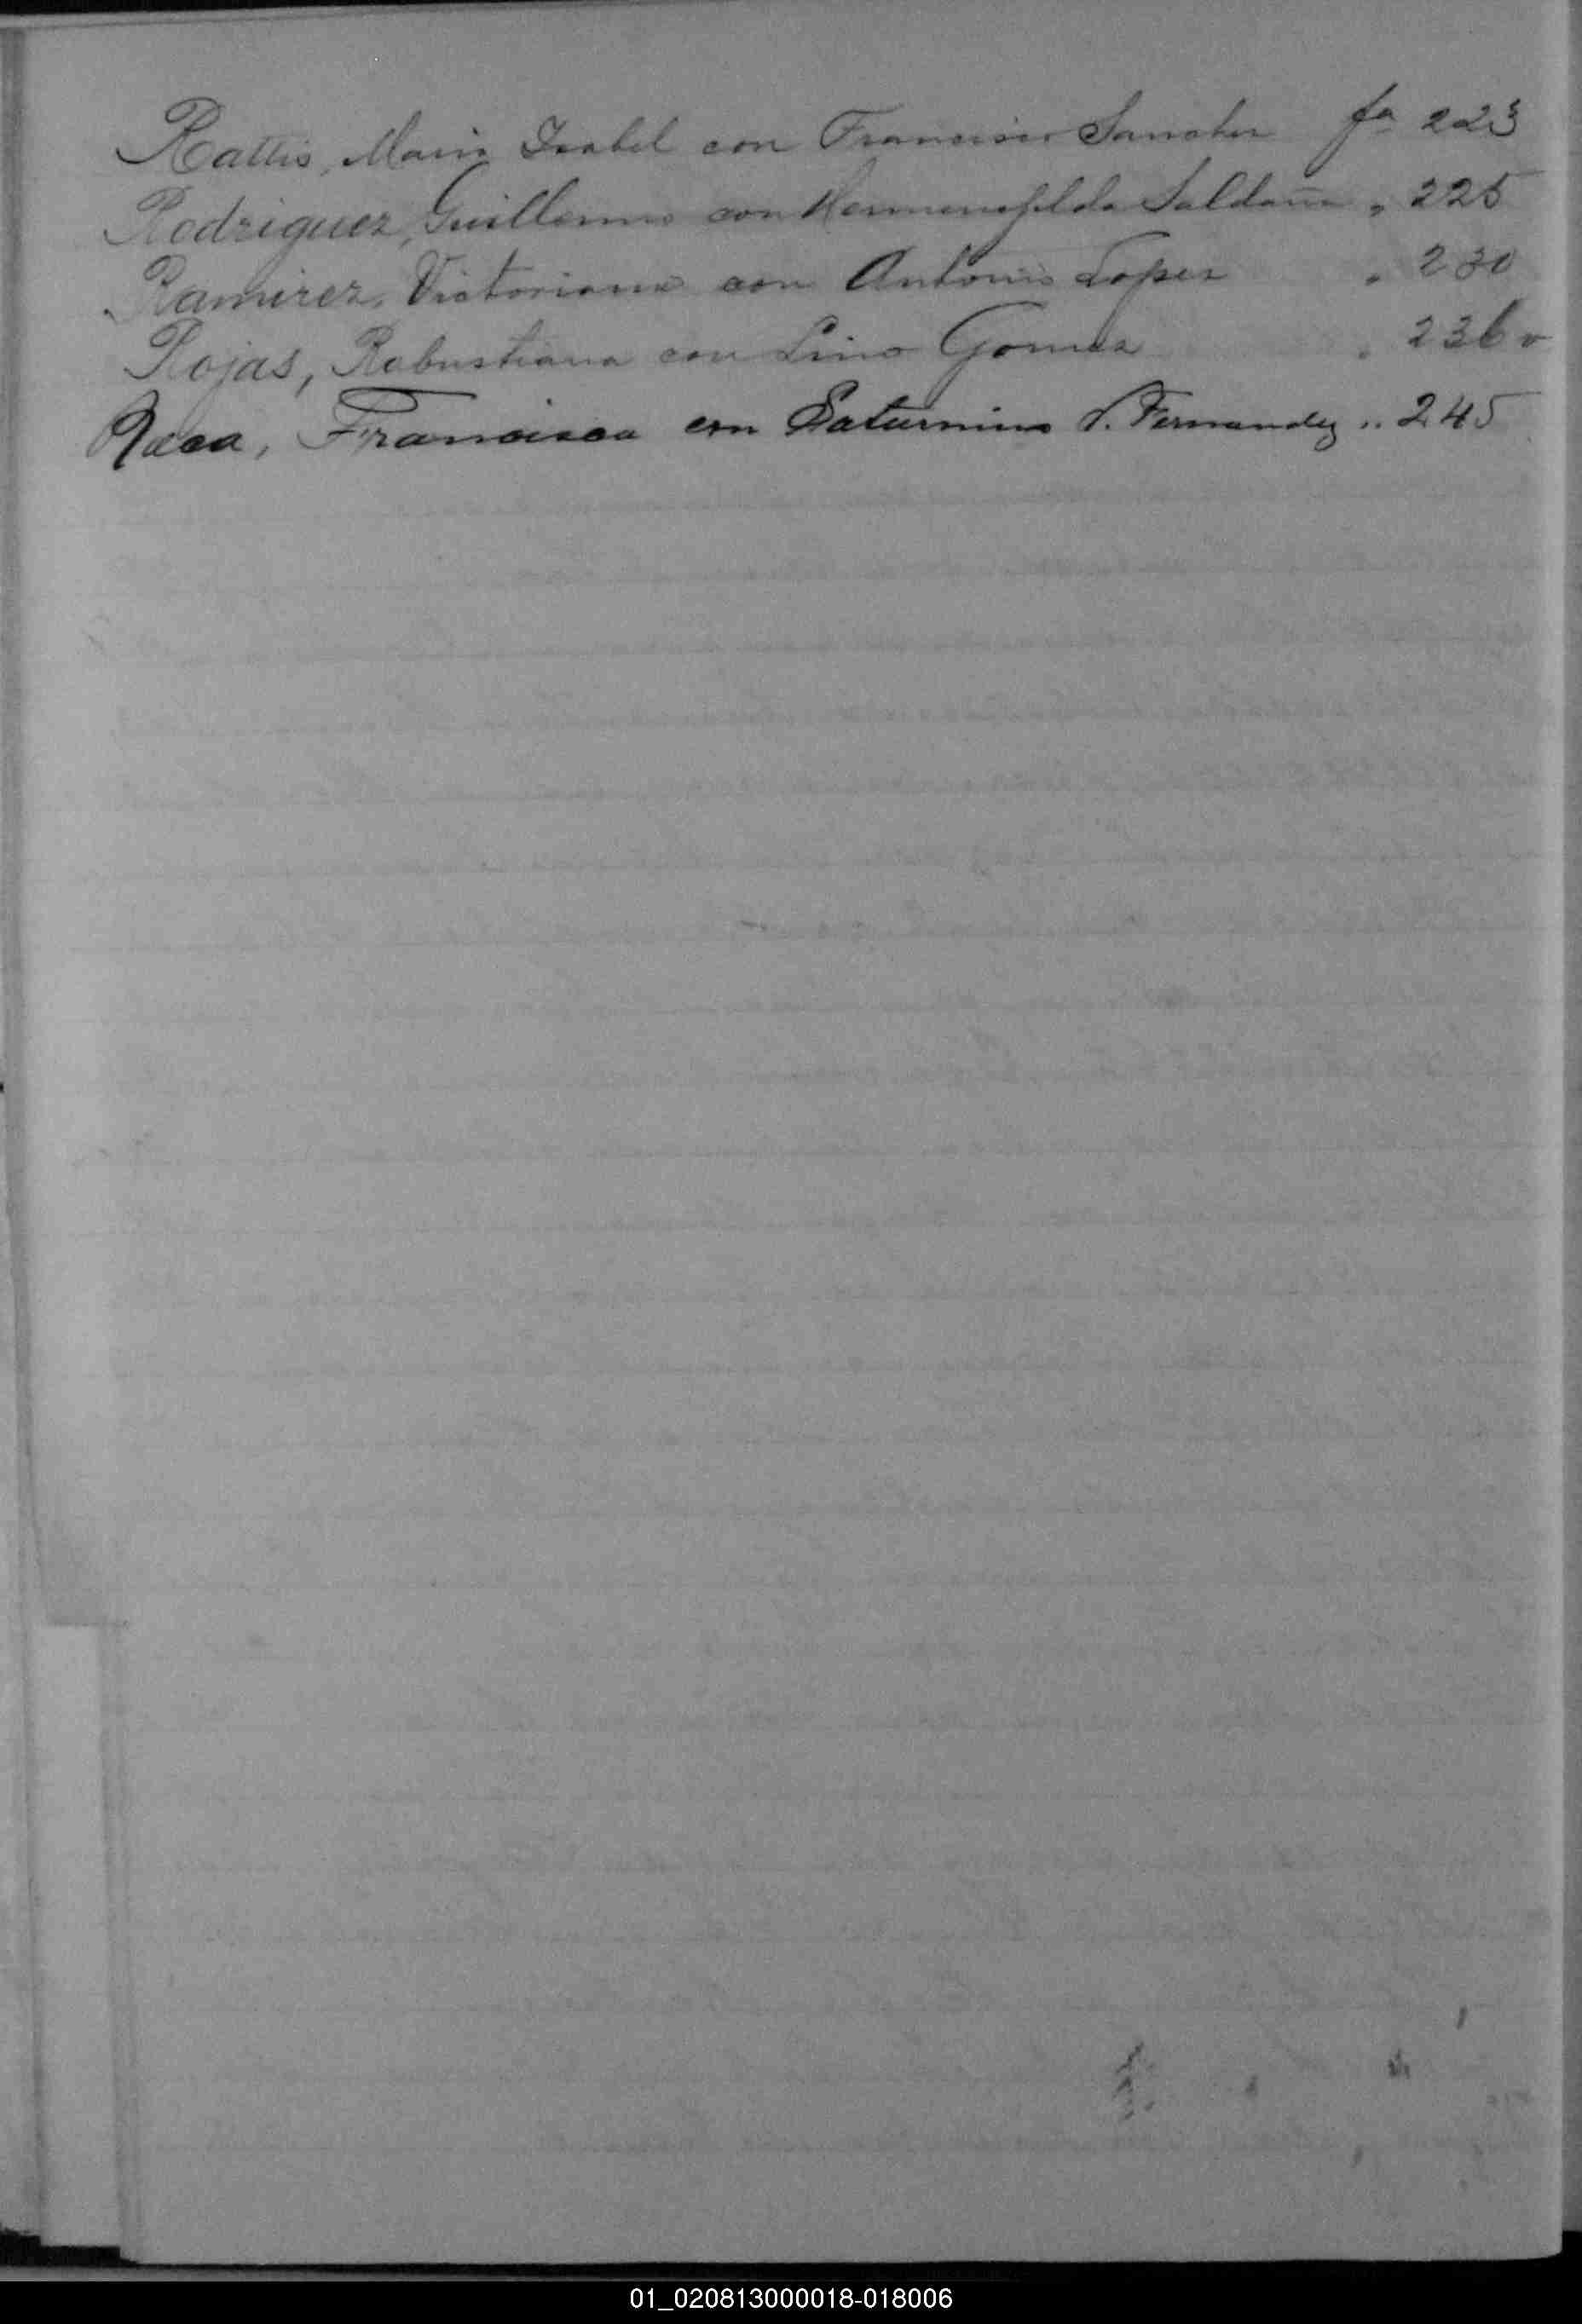 Rattis, Maria Isabel con Francisco Sanchez fa 223
Rodriguez, Guillermo con Hermenegilda Saldaña " 225
Ramirez, Victoriana con Antonio Lopez " 230
Rojas, Robustiana con Lino Gomez " 236 v
Francisca con Saturnino S. Fernandez " 245
01_020813000018-018006